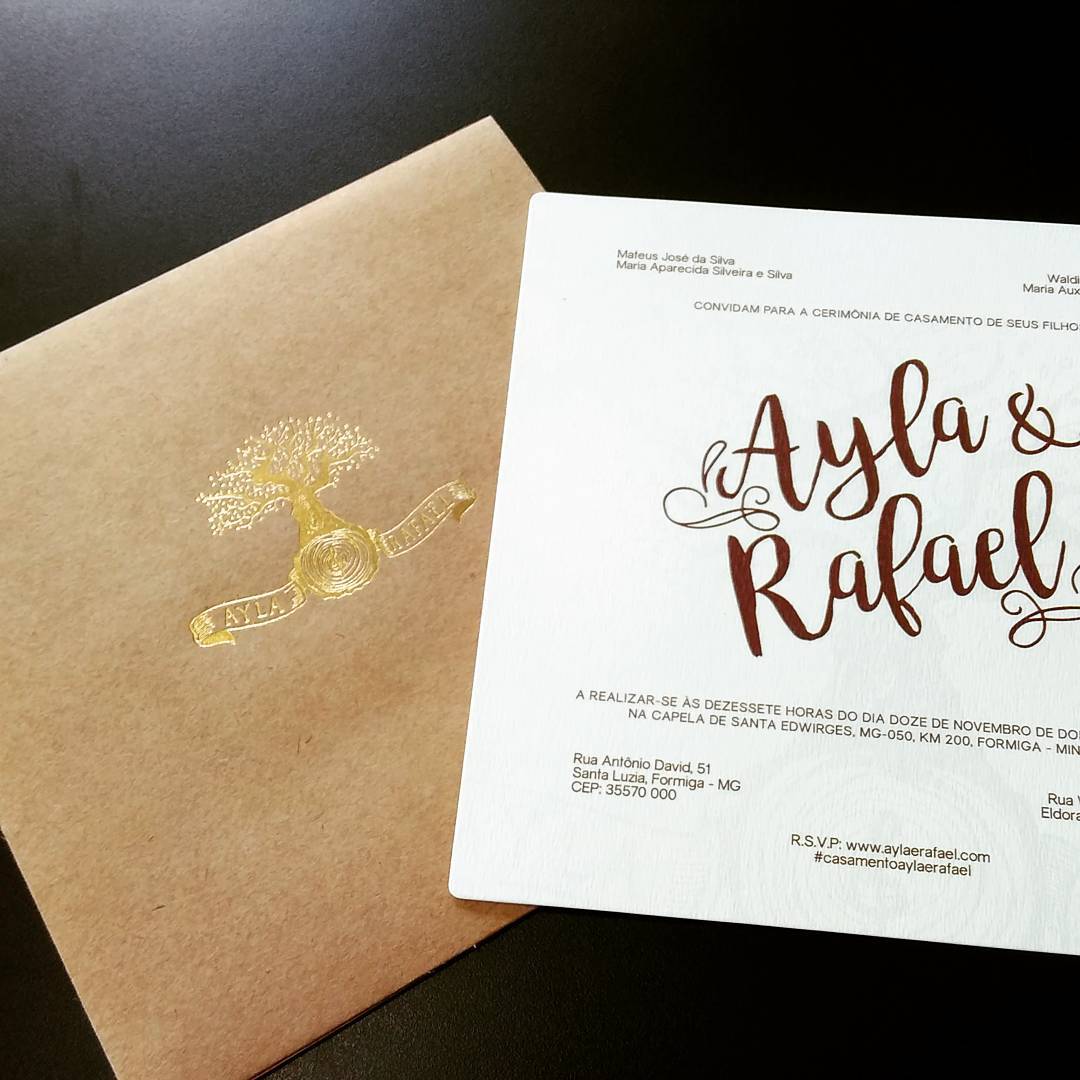 AYLA
RAFAEL
Mateus José da Silva
Maria Aparecida Silveira e Silva
Maria
CONVIDAM PARA A CERIMÔNIA DE CASAMENTO DE SEUS
Ayla &
Rafael
A REALIZAR-SE ÀS DEZESSETE HORAS DO DIA DOZE DE NOVEMBRO DE
NA CAPELA DE SANTA EDWIRGES, MG-050, KM 200, FORMIGA -
Rua Antônio David, 51
Santa Luzia, Formiga - MG
CEP: 35570 000
Rua
R.S.V.P: www.aylaerafael.com
#casamentoaylaerafael